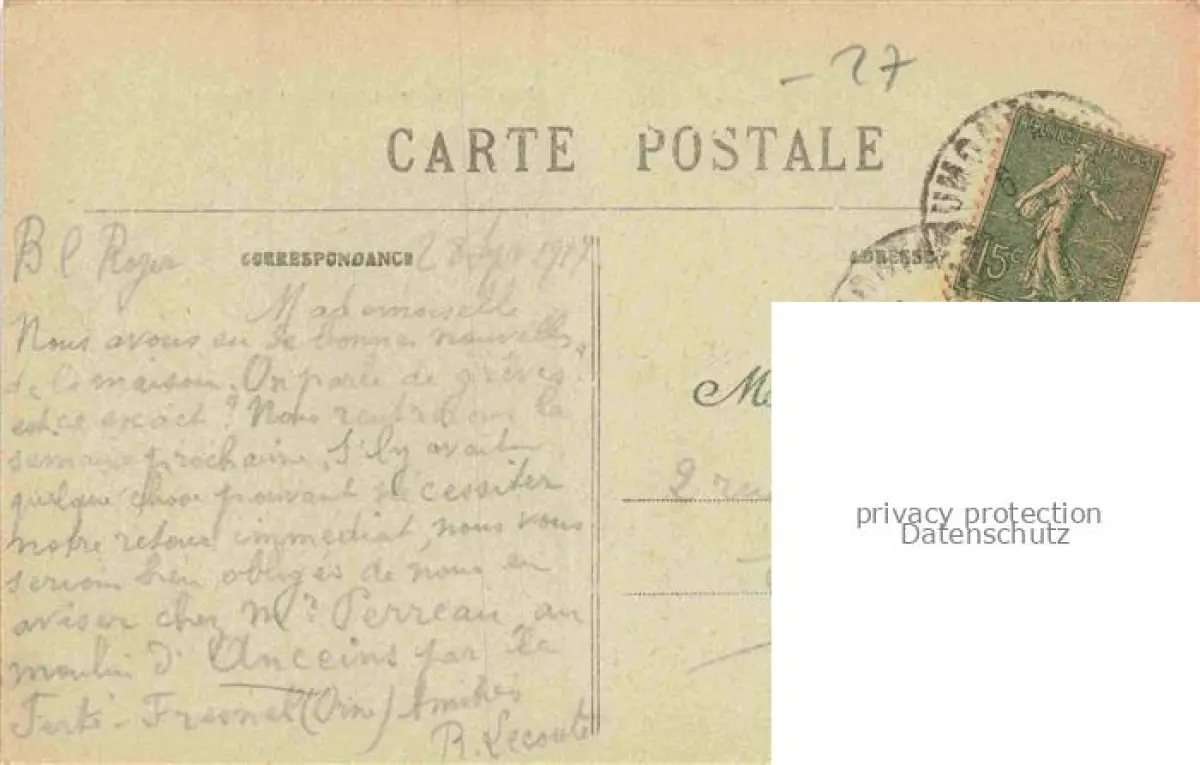 - 27
CARTE POSTALE
B l Roger
CORRESPONDANCE
2 1917
ADRESSE
RÉPUBLIQUE FRANÇAISE
15c
UMON
Mademoiselle
Nous avons eu de bonnes nouvelles
de la maison. On parle de grèves.
est-ce exact? Nous rentrerons la
semaine prochaine. S'il y avait
quelque chose pouvant nécessiter
notre retour immédiat, nous vous
serions bien obligés de nous en
aviser chez Mr Perreau au
moulin d'Anceins par la
Ferté-Fresnel (Orne) Amitiés
R. Lecoute
M
9 rue
privacy protection
Datenschutz